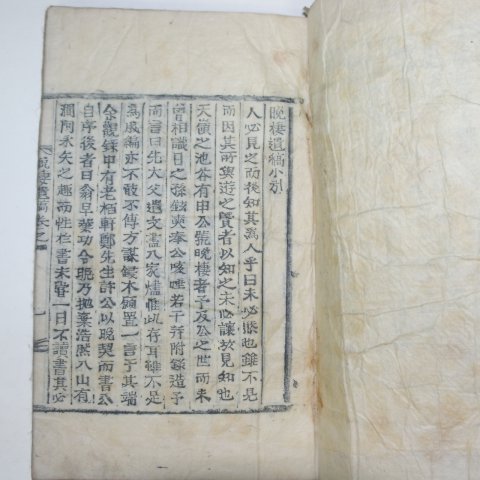 晚棲遺稿小引
人必見之而後知其爲人乎曰未必然也雖不見
而因其所與遊之賢者以知之未必讓於見知也
天嶺之池谷有申公號晚棲者予及公之世而未
曾相識日之孫 奉公 唯若干幷附錄造予
而言曰先大父遺文盡入家燼惟此存耳雖不足
爲成編亦不敢不傳方謀鋟木願置一言于其端
余觀錄中有老栢軒鄭先生許公以晚契而書公
自序後者曰翁早業功令晚乃抛棄浩然入山有
猿鶴永矢之趣而性 書未嘗一日不讀書其必
晚棲遺稿 序 一